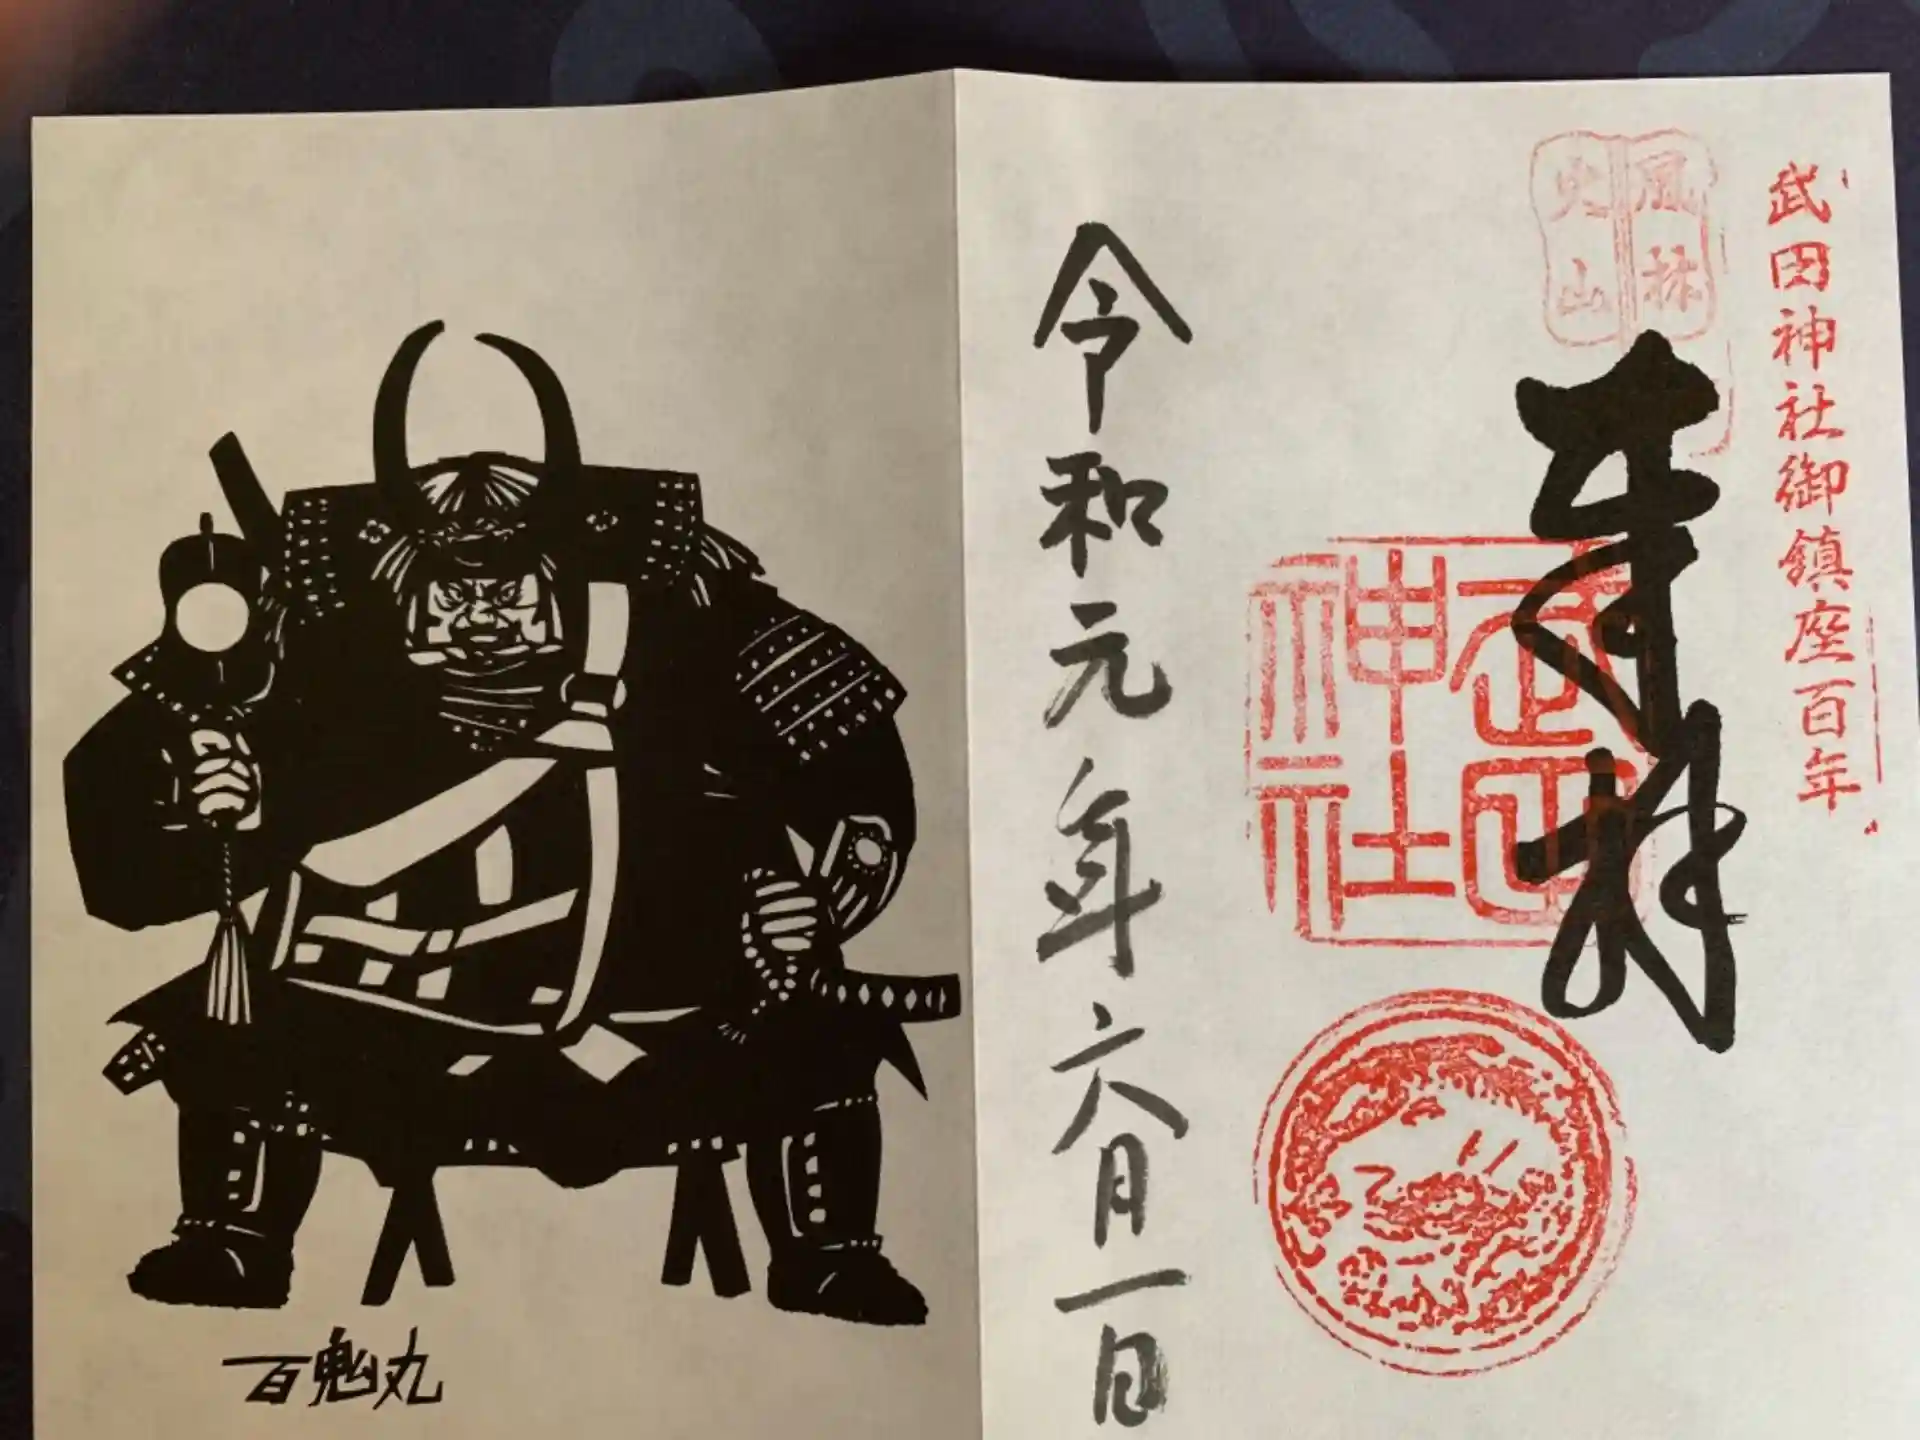 武田神社御鎮座百年
風林
火山
奉拝
武田
神社
令和元年六月一日
百鬼丸